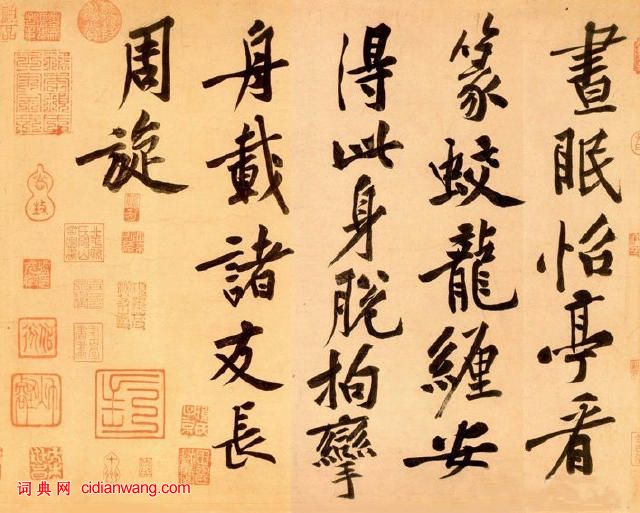 晝眠怡亭看
篆蛟龍纏安
得此身脫拘攣
舟載諸友長
周旋
词典网 cidianwang.com